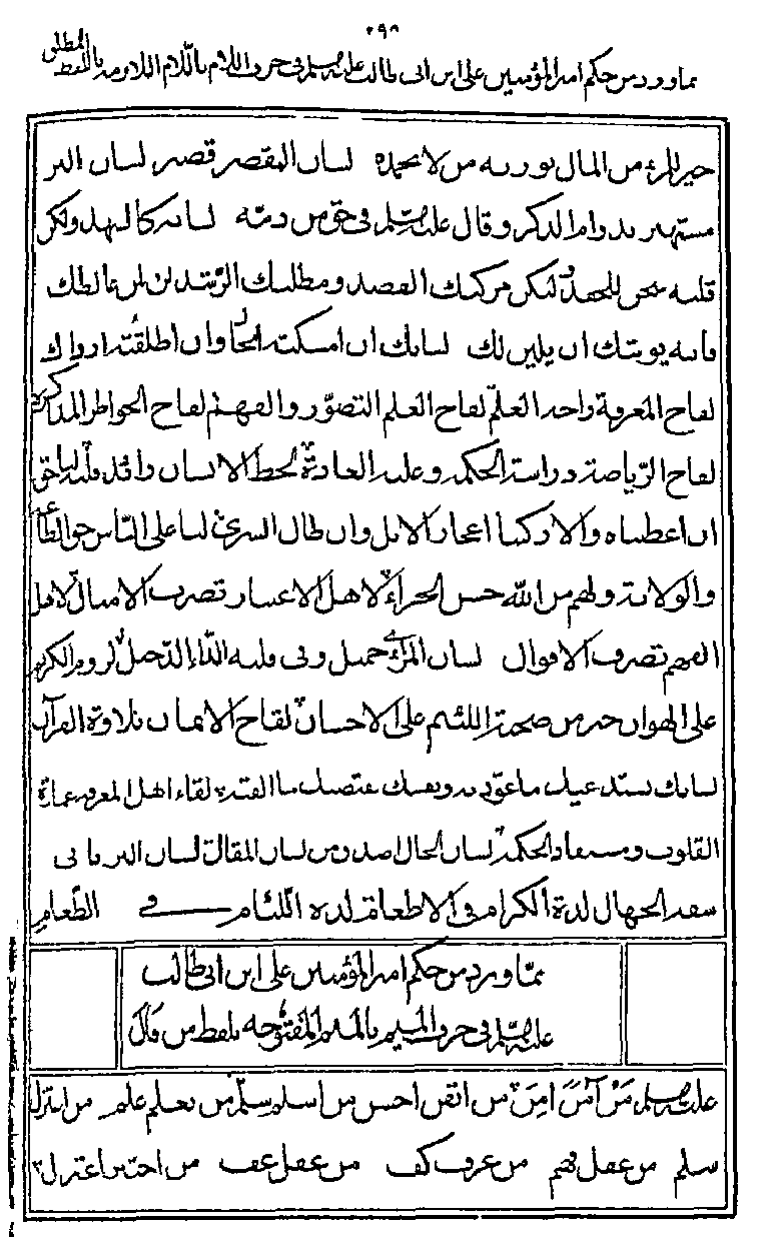 ٢٩٨
مما ورد من حكم امير المؤمنين على ابن ابى طالب عليه السلم فى حرف اللام باللام اللازمة باللفظ المطلق
خير للمرء من المال يورثه من لا يحمده لسان المقصر قصير لسان البر
مستهتر بدوام الذكر وقال عليه السلم فى حق من ذمه لسانه كالشهد ولكن
قلبه سجن للحقد ليكن مركبك القصد ومطلبك الرشد لن لمن غالظك
فانه يوشك ان يلين لك لسانك ان امسكته انجاك وان اطلقته ارداك
لقاح المعرفة دراسة العلم لقاح العلم التصور والفهم لقاح الخواطر المذاكرة
لقاح الرياضة دراسة الحكمة وغلبة العادة لحظ الانسان رائد قلبه لنا حق
ان اعطيناه والا ركبنا اعجاز الابل وان طال السرى لنا على الناس حق الطاعة
والولاية ولهم من الله حسن الجزاء لاهل الاعتبار تضرب الامثال لاهل
الفهم تصرف الاقوال لسان المرائى جميل وفى قلبه الداء الدخيل لزوم الكريم
على الهوان خير من صحبة اللئيم على الاحسان لقاح الايمان تلاوة القرآن
لسانك يستدعيك ما عودته ونفسك تقتضيك ما الفته لقاء اهل المعرفة عمارة
القلوب ومستفاد الحكمة لسان الحال اصدق من لسان المقال لسان البر يابى
سفه الجهال لذة الكرام فى الاطعام لذة اللئام فى الطعام
مما ورد من حكم امير المؤمنين على ابن ابى طالب
عليه السلم فى حرف الميم بالميم المفتوحه بلفظ من قال
عليه السلم من آمن امن من اتقن احسن من اسلم سلم من تعلم علم من اعتزل
سلم من عقل فهم من عرف كف من عقل عف من اختبر اعتزل